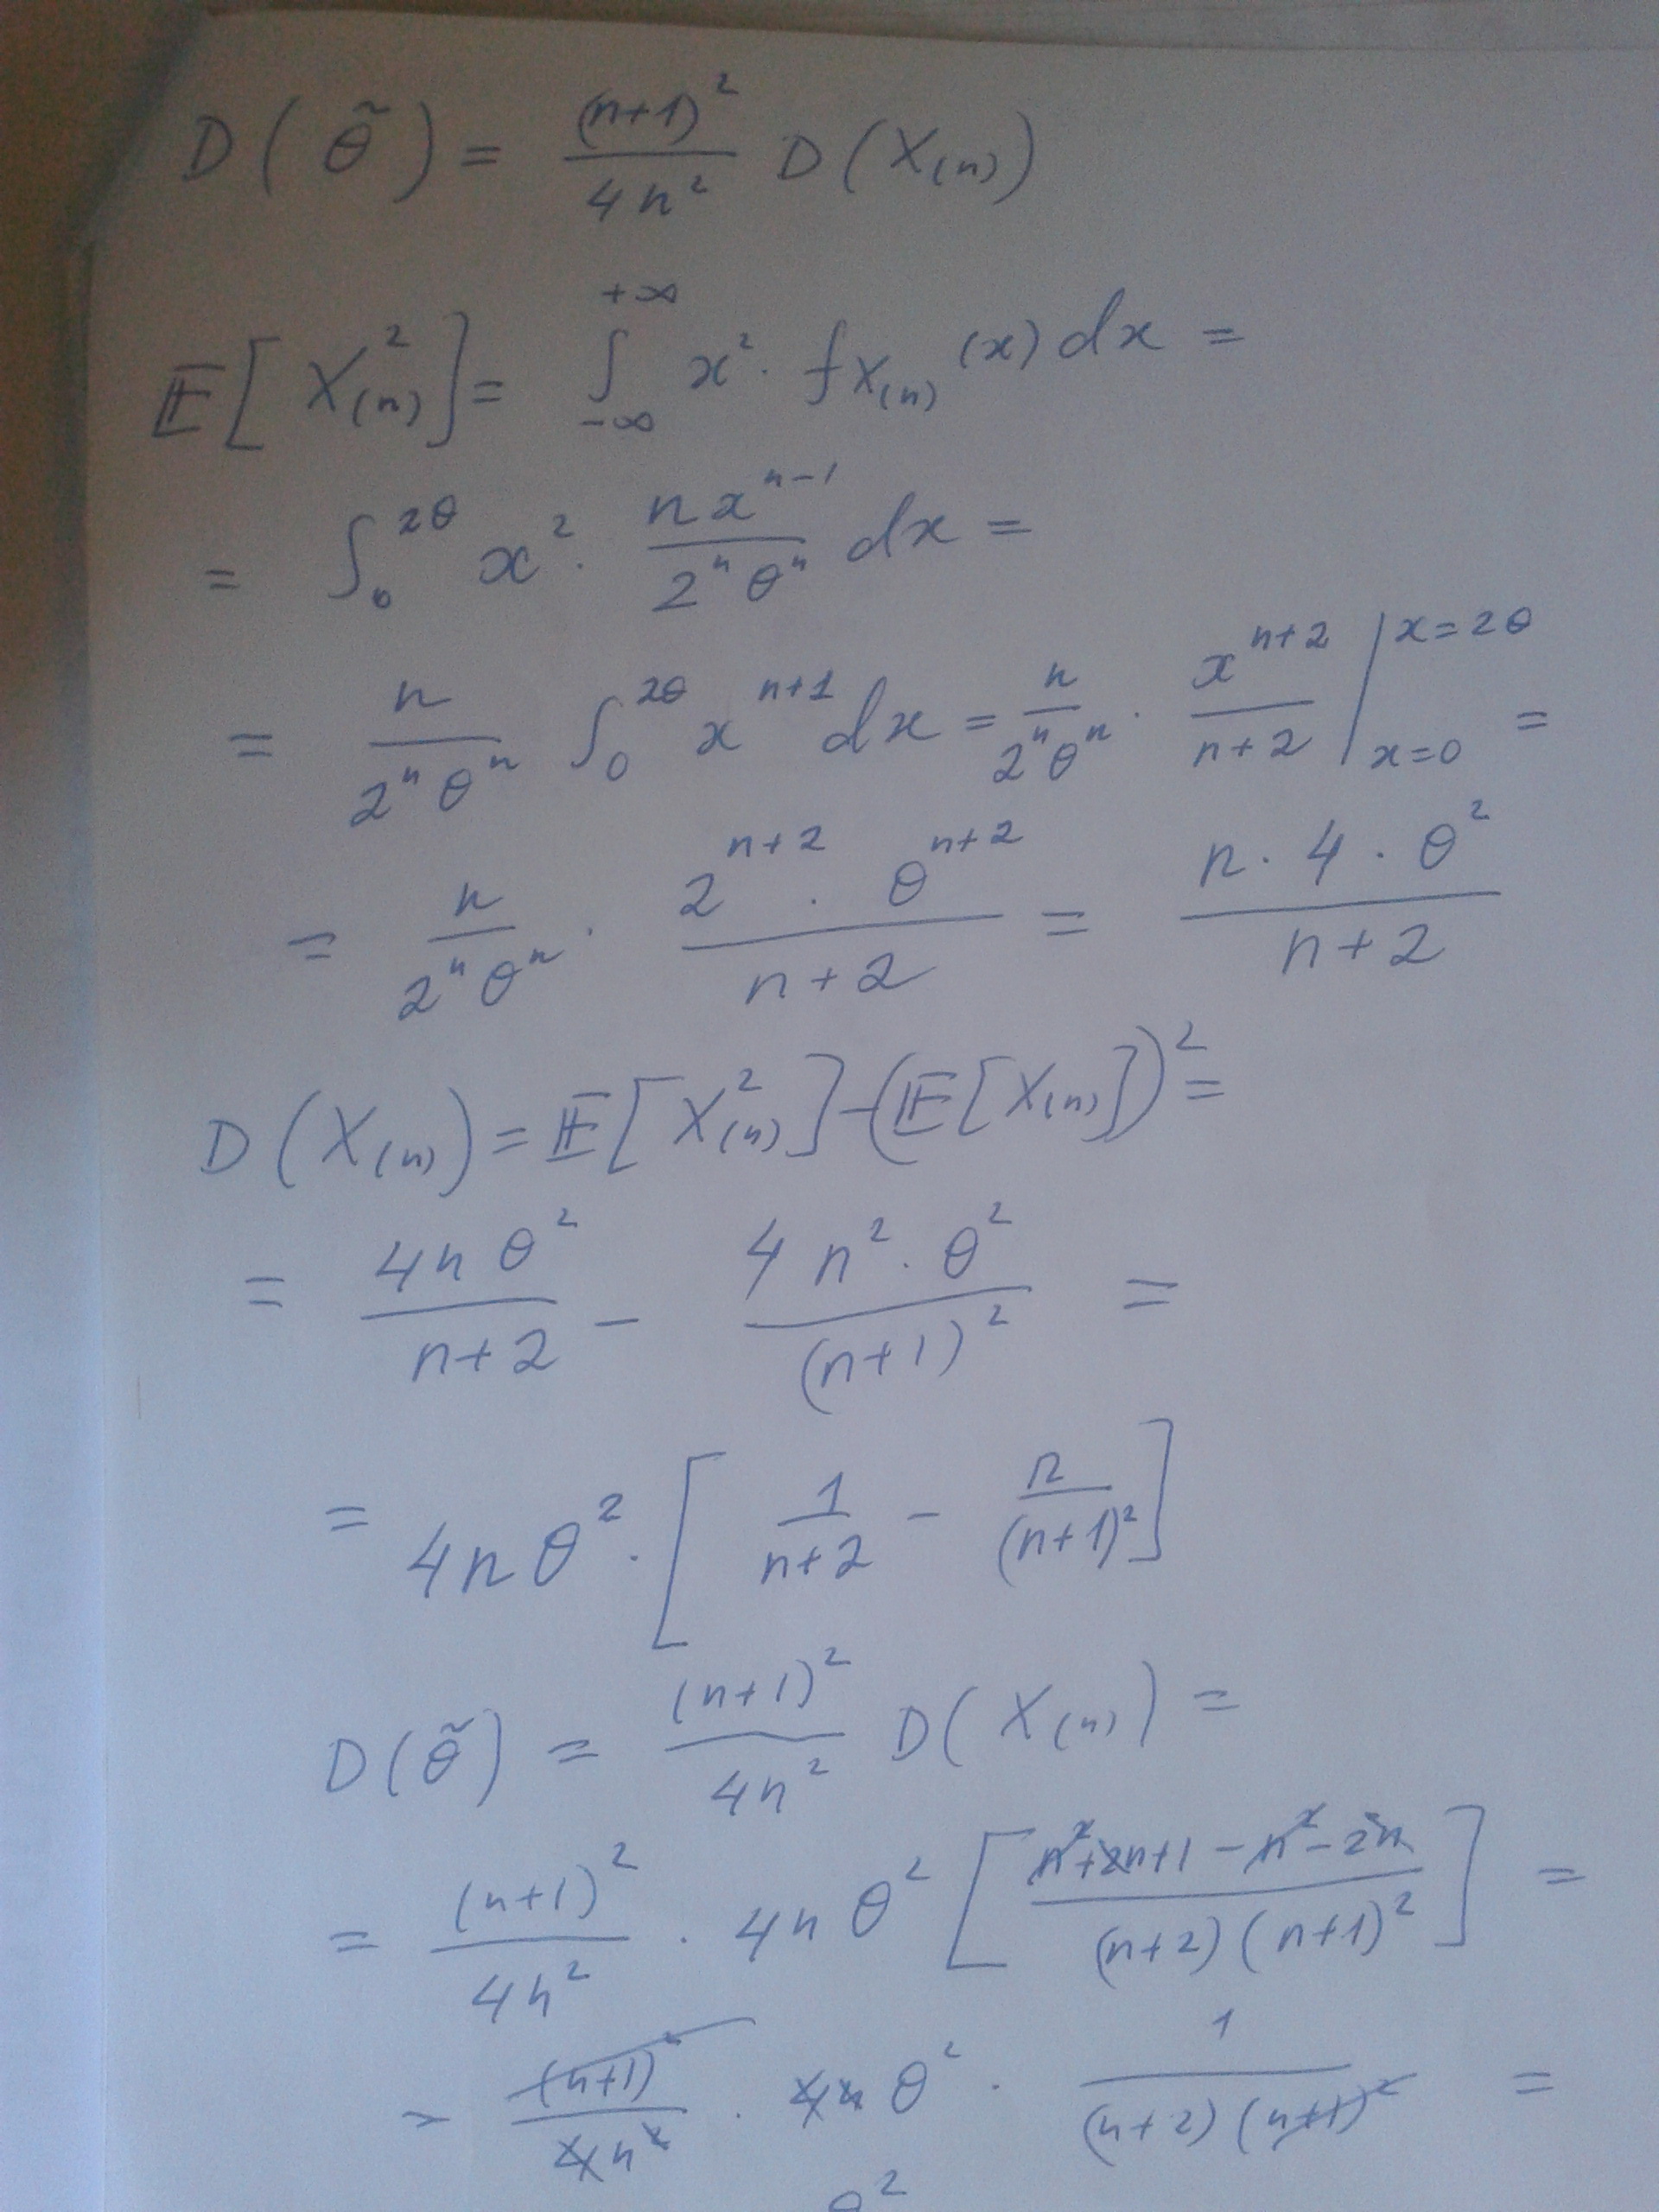 D(θ̃) = (n+1)²/4n² D(X₍ₙ₎)
𝔼[X²₍ₙ₎] = ∫₋∞^+∞ x² · f_X₍ₙ₎(x) dx =
= ∫₀^2θ x² · nxⁿ⁻¹/2ⁿθⁿ dx =
= n/2ⁿθⁿ ∫₀^2θ xⁿ⁺¹ dx = n/2ⁿθⁿ · xⁿ⁺²/n+2 |ₓ₌₀^x=2θ =
= n/2ⁿθⁿ · 2ⁿ⁺² · θⁿ⁺²/n+2 = n · 4 · θ²/n+2
D(X₍ₙ₎) = 𝔼[X²₍ₙ₎] − (𝔼[X₍ₙ₎])² =
= 4nθ²/n+2 − 4n² · θ²/(n+1)² =
= 4nθ² · [1/n+2 − n/(n+1)²]
D(θ̃) = (n+1)²/4n² D(X₍ₙ₎) =
= (n+1)²/4n² · 4nθ² [n²+2n+1−n²−2n/(n+2)(n+1)²] =
= (n+1)²/4n² · 4nθ² · 1/(n+2)(n+1)² =
θ²